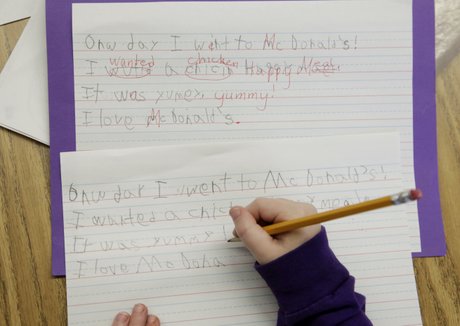 Onw day I went to McDonald's!
wanted chicken
I wute a chicin Happy Meal.
It was yumey, yummy!
I love McDonald's.
Onw day I went to McDonald's!
I wanted a chick
It was yummy!
I love McDona